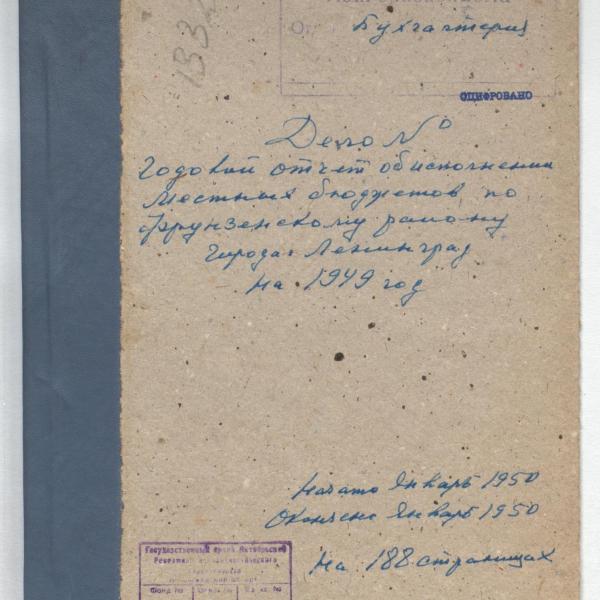 133
Бухгалтерия
ОЦИФРОВАНО
Дело №
Годовой отчет об исполнении
местных бюджетов по
Фрунзенскому району
города Ленинград
на 1949 год
Начато Январь 1950
Окончено Январь 1950
На 188 страницах
Государственный Архив Октябрьской
Фонд №